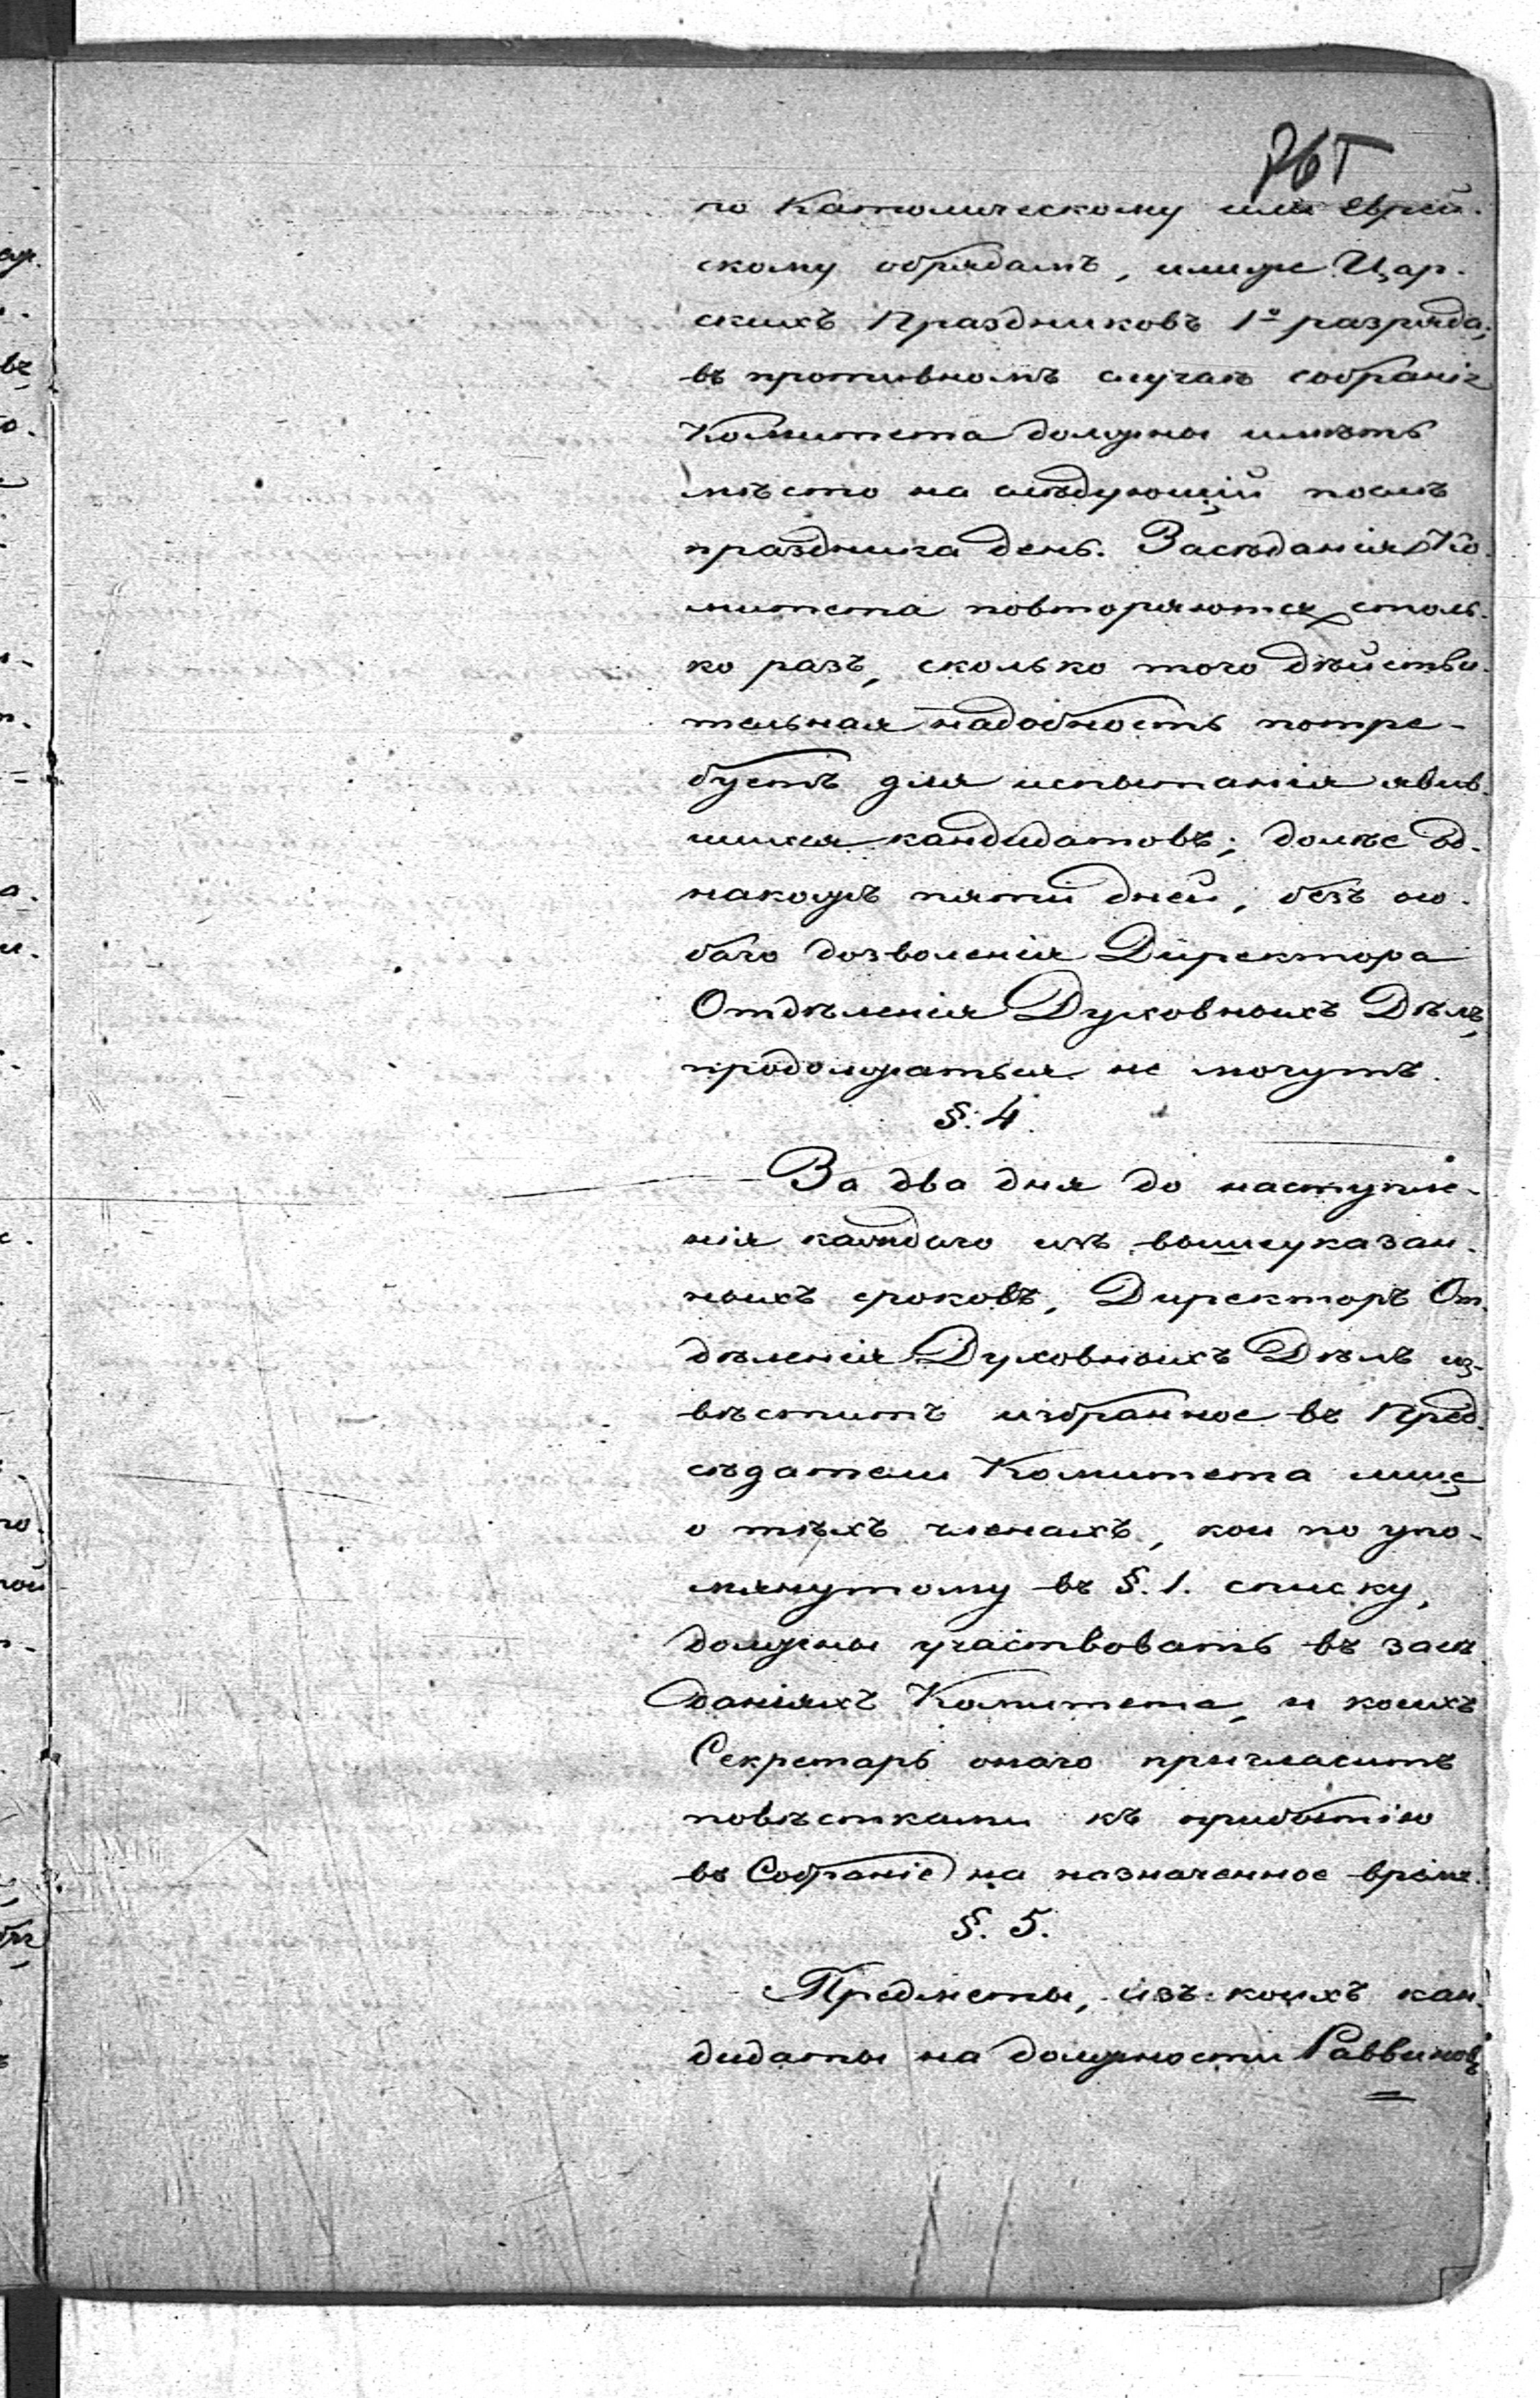 по Католическому или Еврей-
скому обрядамъ, илиже Цар-
скихъ Праздниковъ 1º разряда;
въ противномъ случаѣ собранія
Комитета должны имѣть
мѣсто на слѣдующій послѣ
праздника день. Засѣданія Ко-
митета повторяются столь-
ко разъ, сколько того дѣйстви-
тельная надобность потре-
буетъ для испытанія явив-
шихся кандидатовъ; долѣе од-
накожъ пяти дней, безъ осо-
баго дозволенія Директора
Отдѣленія Духовныхъ Дѣлъ,
продолжаться не могутъ.
§. 4.
За два дня до наступле-
нія каждаго изъ вышеуказан-
ныхъ сроковъ, Директоръ От-
дѣленія Духовныхъ Дѣлъ из-
вѣститъ избранное въ Пред-
сѣдатели Комитета лице
о тѣхъ членахъ, кои по упо-
мянутому въ §. 1. списку,
должны участвовать въ засѣ-
даніяхъ Комитета, и коихъ
Секретарь онаго пригласитъ
повѣстками къ прибытію
въ Собраніе на назначенное время.
§. 5.
Предметы, изъ коихъ кан-
дидаты на должности Раввиновъ